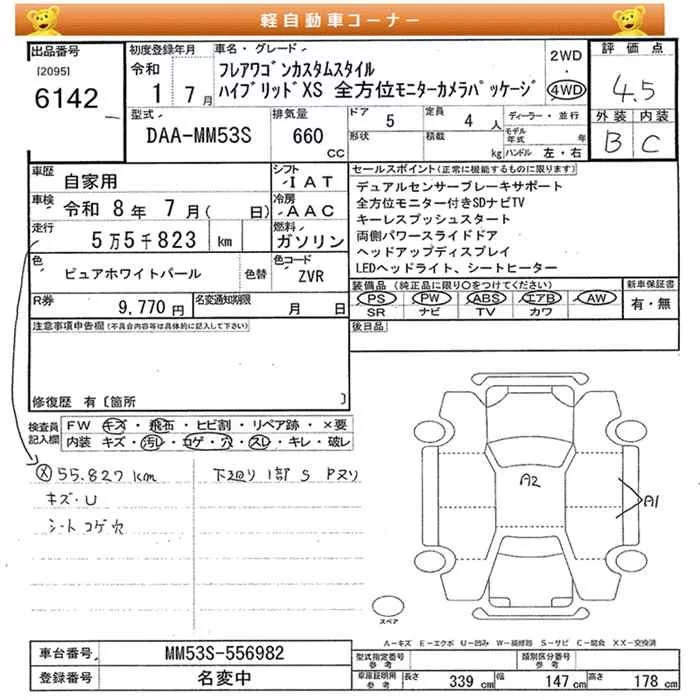 軽自動車コーナー
出品番号
[2095]
6142
初度登録年月
令和
1 7月
車名・グレード
フレアワゴンカスタムスタイル
ハイブリッドXS 全方位モニターカメラパッケージ
2WD
・
4WD
評価点
4.5
外装 内装
B C
型式
DAA-MM53S
排気量
660
CC
ドア 5
定員 4 人
形状
積載 kg
ディーラー・並行
モデル年式 年
ハンドル 左・右
車歴 自家用
シフト IAT
車検 令和 8年 7月( 日)
冷房 AAC
走行 5万5千823 km
燃料 ガソリン
色 ピュアホワイトパール 色替
色コード ZVR
R券 9,770円
名変通知期限 月 日
セールスポイント(正常に機能するものに限ります)
デュアルセンサーブレーキサポート
全方位モニター付きSDナビTV
キーレスプッシュスタート
両側パワースライドドア
ヘッドアップディスプレイ
LEDヘッドライト、シートヒーター
装備品(純正品に限り○をつけてください)
PS PW ABS エアB AW
SR ナビ TV カワ
新車保証書
有・無
後日品
注意事項申告欄(不具合内容等は具体的に記入して下さい)
修復歴 有〔箇所 〕
検査員記入欄
FW キズ・飛石・ヒビ割・リペア跡・×要
内装 キズ・汚レ・コゲ・穴・スレ・キレ・破レ
55.827km
キズ・U
シートコゲ穴
下廻り 1部 S Pヌリ
A2
A1
スペア
A－キズ E－エクボ U－凹み W－補修跡 S－サビ C－腐食 XX－交換済
車台番号 MM53S-556982
登録番号 名変中
型式指定番号 参考
類別区分番号 参考
車庫証明用 参考
長さ 339 cm
幅 147 cm
高さ 178 cm